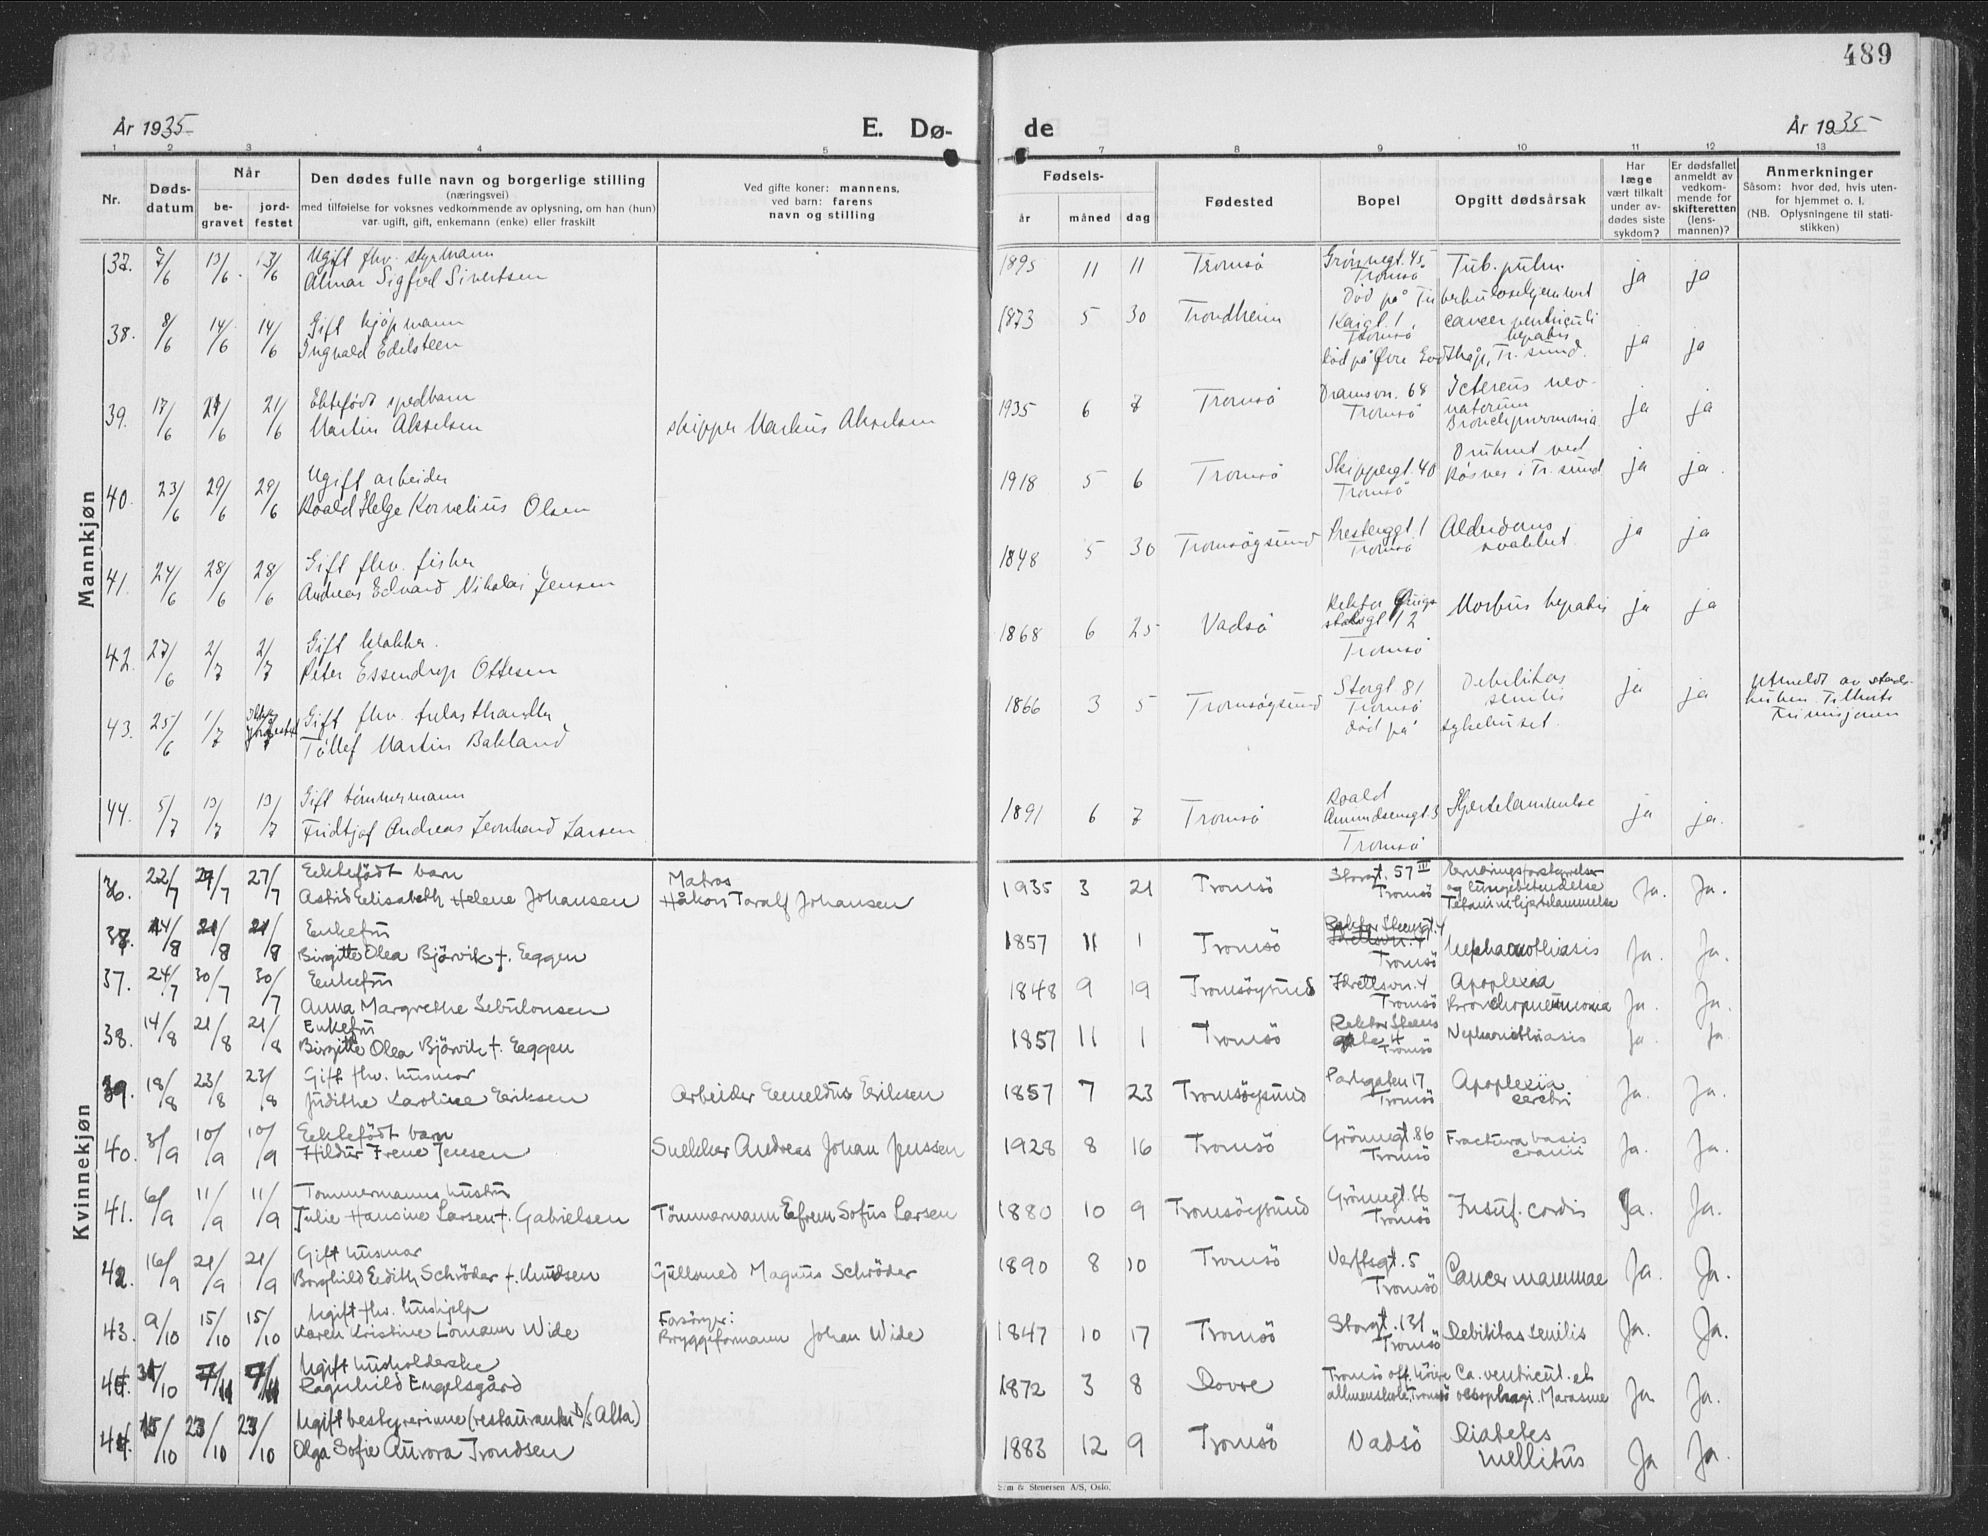 489
År 1935
E. Dø-
de
År 1935
1 2 3 4 5 6 7 8 9 10 11 12 13
Nr.
Døds-
datum
Når
be-
gravet
jord-
festet
Den dødes fulle navn og borgerlige stilling
(næringsvei)
med tilføielse for voksnes vedkommende av oplysning, om han (hun)
var ugift, gift, enkemann (enke) eller fraskilt
Ved gifte koner: mannens,
ved barn: farens
navn og stilling
Fødsels-
år
måned
dag
Fødested
Bopel
Opgitt dødsårsak
Har
læge
vært tilkalt
under av-
dødes siste
sykdom?
Er dødsfallet
anmeldt av
vedkom-
mende for
skifteretten
(lens-
mannen)?
Anmerkninger
Såsom: hvor død, hvis uten-
for hjemmet o. l.
(NB. Oplysningene til stati-
stikken)
Mannkjøn
37. 7/6 13/6 13/6 Ugift fhv. styrmann
Almar Sigfred Sivertsen
1895 11 11 Tromsö Grönnegt. 45 Tub. pulm. ja ja
Tromsö
Död på Tuberkulosehjemmet
38. 8/6 14/6 14/6 Gift kjöpmann
Ingvald Edelsteen
1873 5 30 Trondheim Kaigt. 1 cancer ventriculi ja ja
Tromsö hepatis
död på Övre Godthåp, Tr. sund.
39. 17/6 21/6 21/6 Ektefödt spedbarn
Martin Akselsen skipper Markus Akselsen
1935 6 8 Tromsö Dramsvn. 68 Icterus neo- ja ja
Tromsö natorum
Bronchpneumonia
40. 23/6 29/6 29/6 Ugift arbeider
Roald Helge Kornelius Olsen
1918 5 6 Tromsö Skippergt. 40 Druknet ved ja ja
Tromsö i Tr. sund
41. 24/6 28/6 28/6 Gift fhv. fisker
Andreas Edvard Nikolai Jensen
1848 5 30 Tromsöysund 1 Alderdoms ja ja
Tromsö svakhet.
42. 27/6 2/7 2/7 Gift
Peter Essendrop Ottesen
1868 6 25 Vadsö Rektor Qvigs Morbus hepatis ja ja
stadsgt 12
Tromsö
43. 25/6 1/7 Ikke jordfestet Gift fhv. trelasthandler
Tollef Martin Bakland
1866 3 5 Tromsöysund Storgt. 81 Debilitas ja ja Utmeldt av stats-
Tromsö senilis kirken. Tilhørte
död på sykehuset. Frimisjonen
44. 5/7 13/7 13/7 Gift tömmermann
Fridtjof Andreas Leonhard Larsen
1891 6 7 Tromsö Roald Hjertelammelse ja ja.
Amundsensgt. 3
Tromsö
Kvinnekjøn
36. 22/7 27/7 27/7 Ektefödt barn Matros
Astrid Elisabeth Helene Johansen Håkon Taralf Johansen
1935 3 21 Tromsö Storgt. 57 III Ernæringsforstyrrelser Ja. Ja.
Tromsö og lungebetendelse
Tetanini Hjertelammelse
37. 14/8 21/8 21/8 Enkefru
Birgitte Olea Björvik f. Eggen
1857 11 1 Tromsö Rektor Steensgt. 4 Nephrolithiasis Ja. Ja.
Idrettsvn. 4
Tromsö
37. 24/7 30/7 30/7 Enkefru
Anna Margrethe Sebulonsen
1848 9 19 Tromsöysund Idrettsvn. 4 Apoplexia Ja. Ja.
Tromsö Bronchopneumonia
38. 14/8 21/8 21/8 Enkefru
Birgitte Olea Björvik f. Eggen
1857 11 1 Tromsö Rektor Steens Nephrolithiasis Ja. Ja.
gate 4 Tromsö
39. 18/8 23/8 23/8 Gift fhv. husmor
Judithe Karoline Eriksen Arbeider Emeldus Eriksen
1857 7 23 Tromsöysund Parkgaten 17 Apoplexia Ja. Ja.
Tromsö cerebri
40. 3/9 10/9 10/9 Ektefödt barn
Hildur Irene Jensen Snekker Andreas Johan Jenssen
1928 8 16 Tromsö Grönnegt. 86 Fractura basis Ja. Ja.
Tromsö cranii
41. 6/9 11/9 11/9 Tömmermanns hustru
Julie Hansine Larsen f. Gabrielsen Tömmermann Efrem Sofus Larsen
1880 10 9 Tromsöysund Grönnegt. 86 Insuf. cordis Ja. Ja.
Tromsö
42. 16/9 21/9 21/9 Gift husmor
Borghild Edith Schröder f. Knudsen Gullsmed Magnus Schröder
1890 8 10 Tromsö Verftsgt. 5 Cancer mammae Ja. Ja.
Tromsö
43. 9/10 15/10 15/10 Ugift fhv. hushjelp Forsörger:
Karen Kristine Lomann Wide Bryggeformann Johan Wide
1847 10 17 Tromsö Storgt. 131 Debilitas senilis Ja. Ja.
Tromsö
44. 31/10 7/11 7/11 Ugift husholderske
Ragnhild Engelsgård
1872 3 8 Dovre Tromsö off. höiere Ca. ventricul. et Ja Ja.
allmenskole, Tromsö oesophagi. Marasme
44. 15/10 23/10 23/10 Ugift bestyrerinne (restauranten D/S Alta)
Olga Sofie Aurora Trondsen
1883 12 9 Tromsö Vadsö Diabetes Ja Ja.
mellitus
Sem & Stenersen A/S, Oslo.